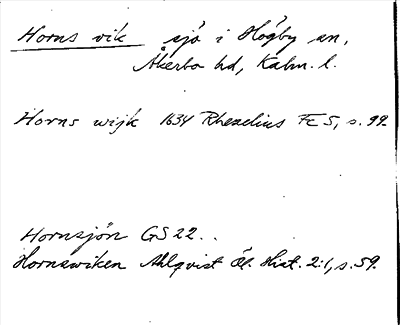 Horns vik sjö i Högby sn,
Åkerbo hd, Kalm. l.
Horns wijk 1634 Rhezelius Fc 5, s. 99.
Hornsjön GS 22..
Hornswiken Ahlqvist Öl. Hist. 2:1, s. 59.